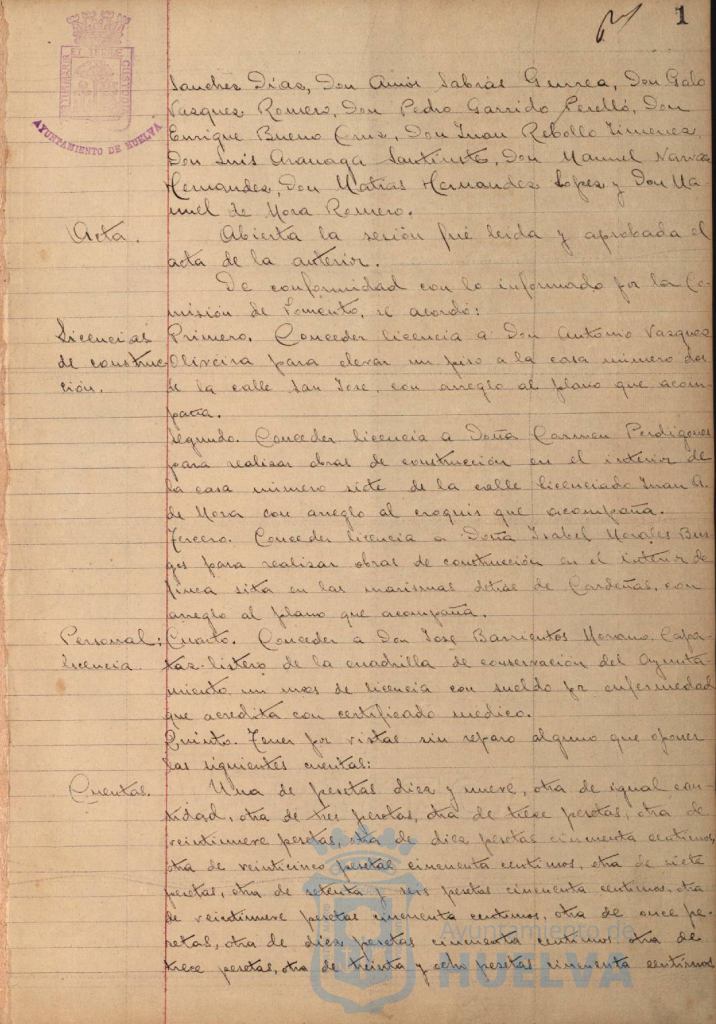 1
AYUNTAMIENTO DE HUELVA
Sanchez Díaz, Don Amós Sabrás Gurrea, Don Galo
Vazquez Romero, Don Pedro Garrido Perelló, Don
Enrique Bueno Cruz, Don Juan Rebollo Jimenez,
Don Luis Aranaga Santiuste, Don Manuel Narvaez
Hernandez, Don Matias Hernandez Lopez y Don Ma-
nuel de Mora Romero.
Acta. Abierta la sesión fué leida y aprobada el
acta de la anterior.
De conformidad con lo informado por la Co-
misión de Fomento, se acordó:
Licencias Primero. Conceder licencia a Don Antonio Vazquez
de construc- Oliveira para elevar un piso a la casa número dos
ción. de la calle San José, con arreglo al plano que acom-
paña.
Segundo. Conceder licencia a Doña Carmen Perdigones
para realizar obras de construcción en el interior de
la casa número siete de la calle licenciado Juan A.
de Mora con arreglo al croquis que acompaña.
Tercero. Conceder licencia a Doña Isabel Morales Bur-
gos para realizar obras de construcción en el interior de
finca sita en las marismas detras de Cardeñas, con
arreglo al plano que acompaña.
Personal: Cuarto. Conceder a Don José Barrientos Morano, Capa-
licencia. taz-listero de la cuadrilla de conservación del Ayunta-
miento un mes de licencia con sueldo por enfermedad
que acredita con certificado médico.
Quinto. Tener por vistas sin reparo alguno que oponer
las siguientes cuentas:
Cuentas. Una de pesetas diez y nueve, otra de igual can-
tidad, otra de tres pesetas, otra de trece pesetas, otra de
veintinueve pesetas, otra de diez pesetas cincuenta centimos,
otra de veinticinco pesetas cincuenta centimos, otra de siete
pesetas, otra de setenta y seis pesetas cincuenta centimos, otra
de veintinueve pesetas cincuenta centimos, otra de once pe-
setas, otra de diez pesetas cincuenta centimos otra de
trece pesetas, otra de treinta y ocho pesetas cincuenta centimos
Ayuntamiento de
HUELVA